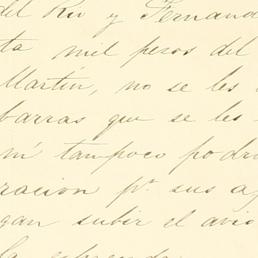 del Rio y Fernand
ta mil pesos del
Martin, no se les
barras que se les
ni tampoco podr
racion pª sus a
gan subir el avio
la